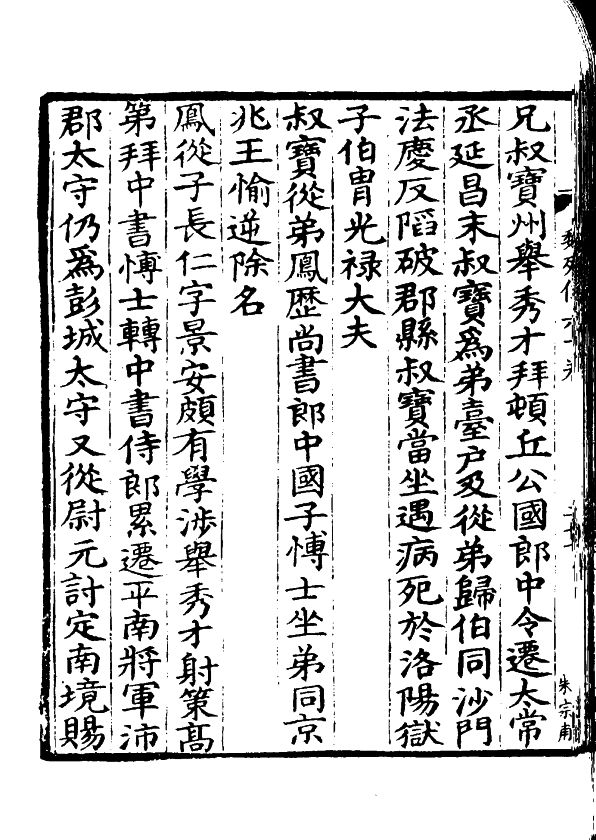 兄叔寶州舉秀才拜頓丘公國郎中令遷太常
丞延昌末叔寶爲弟臺户及從弟歸伯同沙門
法慶反䧟破郡縣叔寶當坐遇病死於洛陽獄
子伯胄光禄大夫
叔寶從弟鳳歷尚書郎中國子愽士坐弟同京
兆王愉逆除名
鳳從子長仁字景安頗有學涉舉秀才射策髙
第拜中書愽士轉中書侍郎累遷平南將軍沛
郡太守仍爲彭城太守又從尉元討定南境賜
朱宗甫